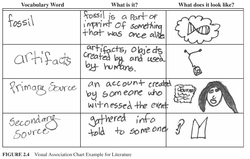 Vocabulary Word What is it? What does it look like?
fossil
fossil is a part or
imprint of something
that was once alive
artifacts
artifacts, objects
created by and used
by humans.
Primary Source
an account created
by someone who
witnessed the event
secondary
Source
gathered into
told to someone
FIGURE 2.4 Visual Association Chart Example for Literature